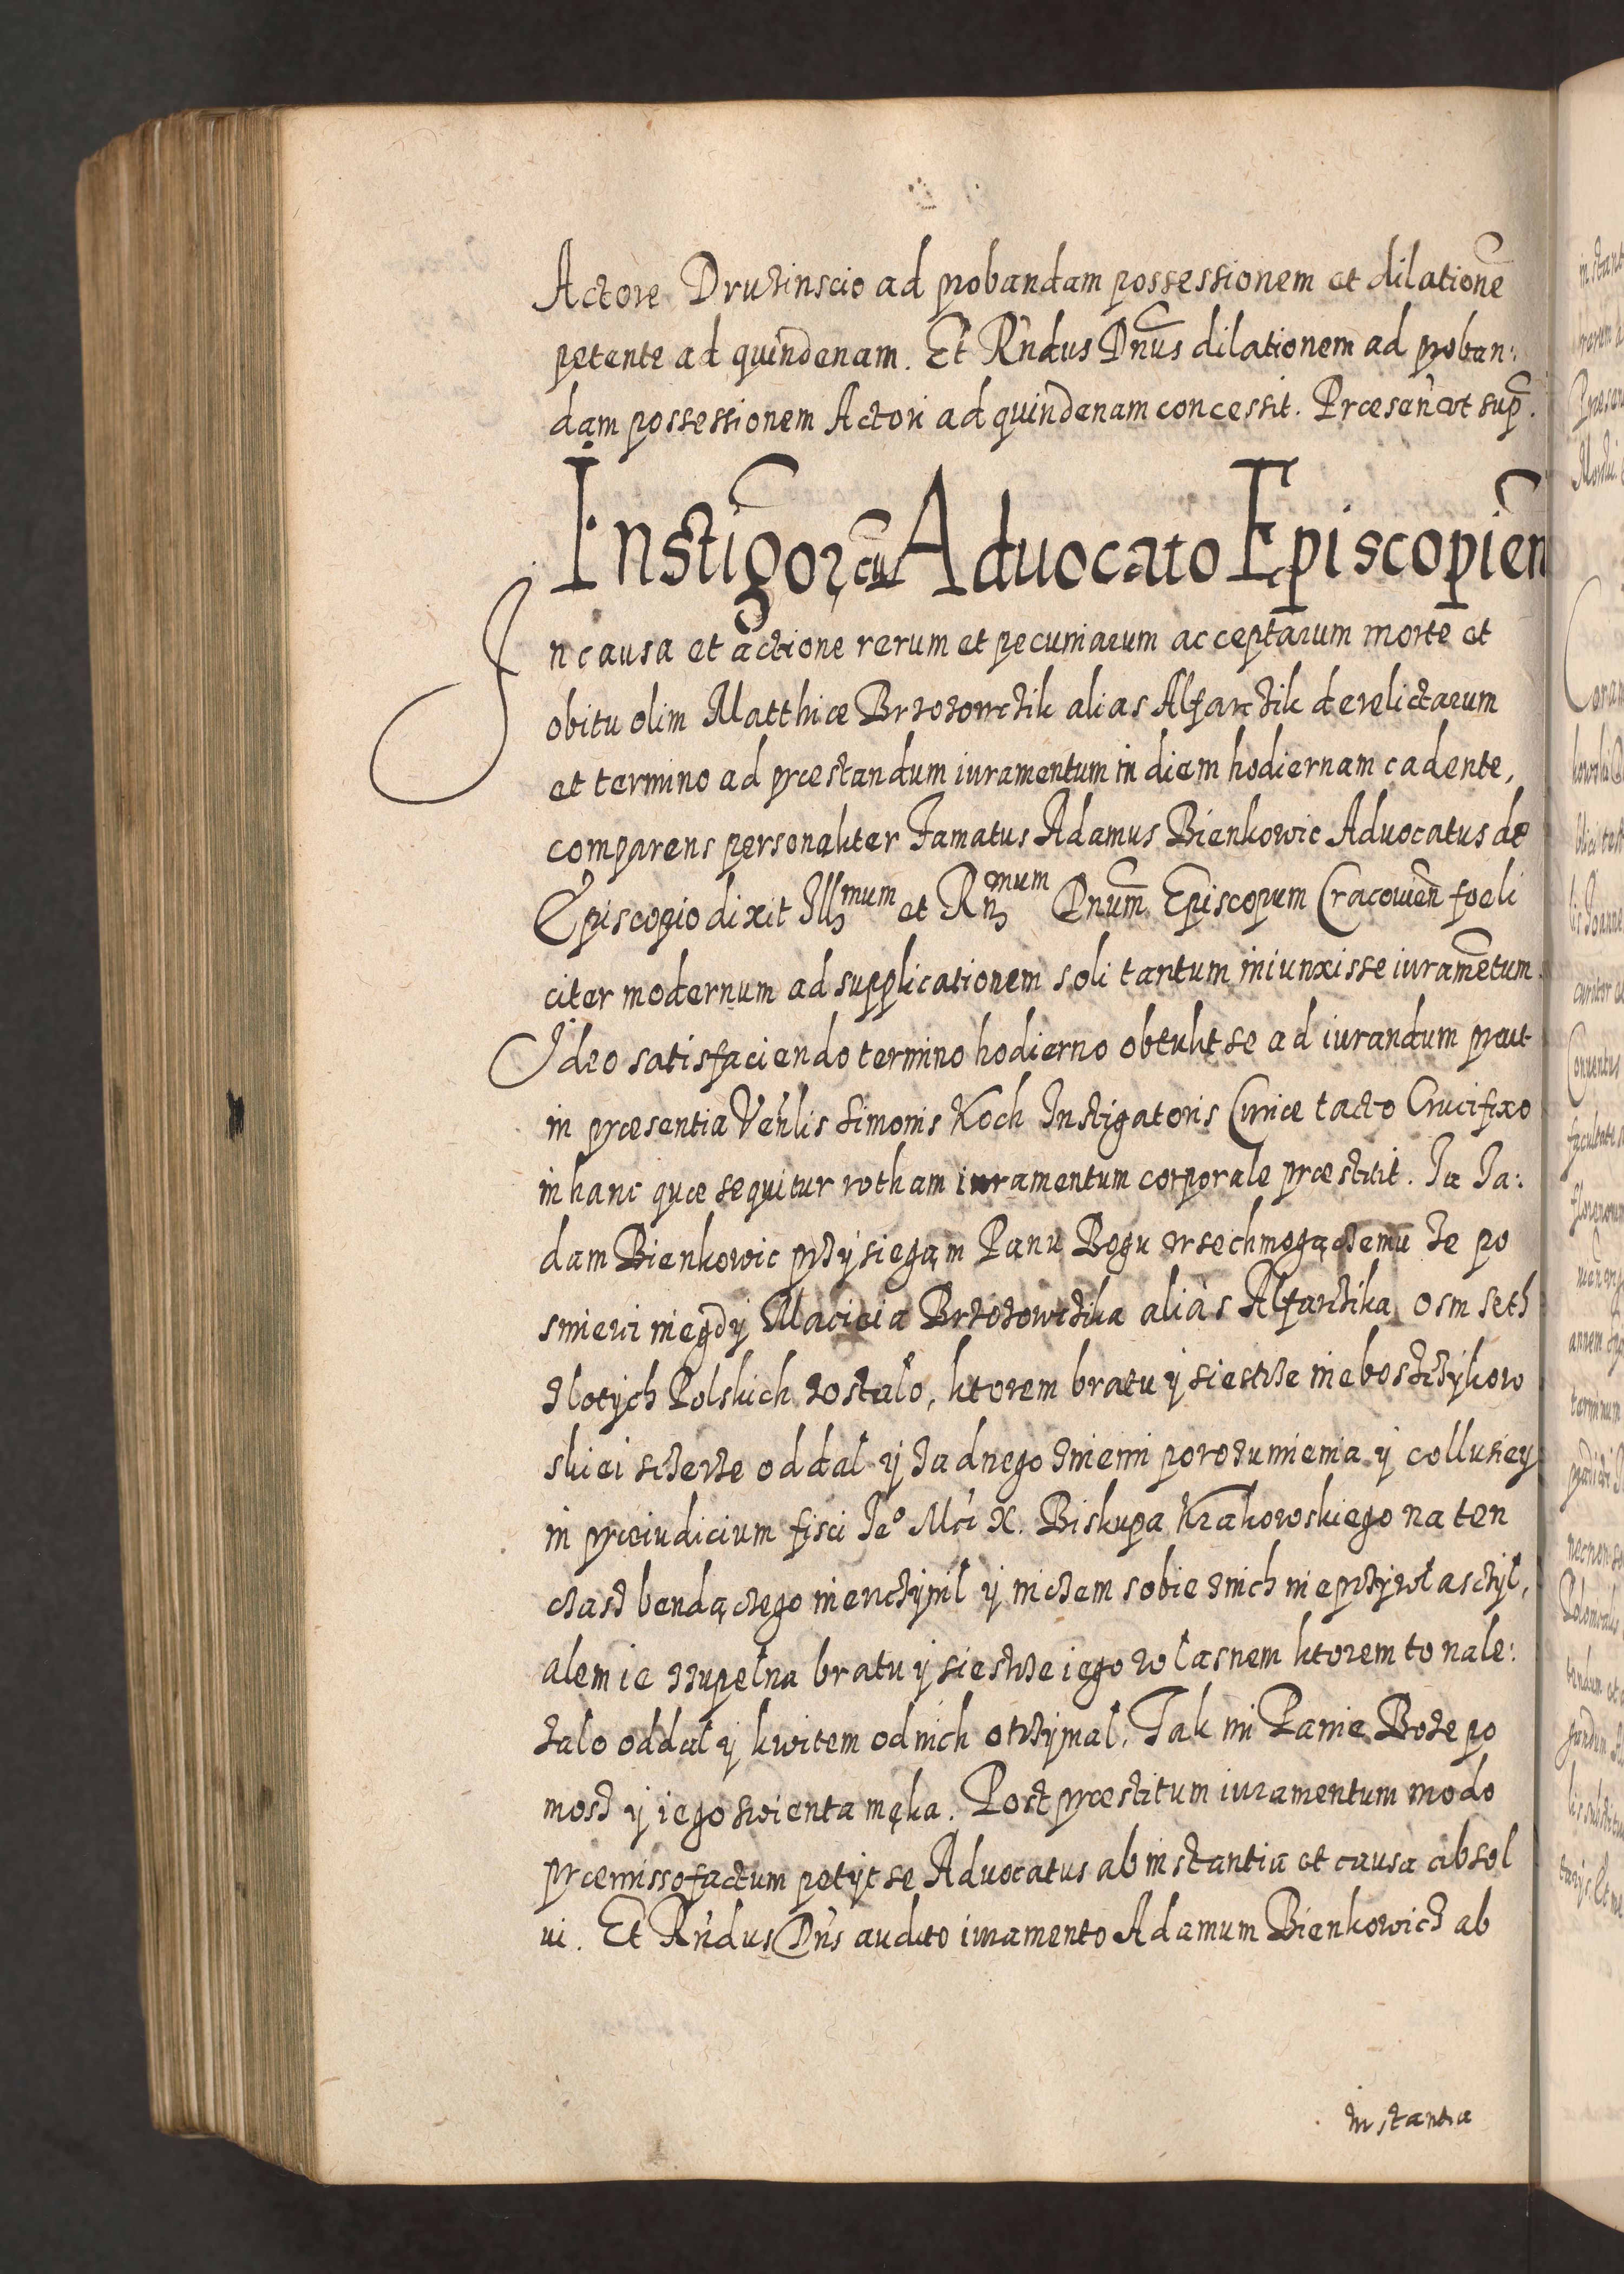 Actore Druzinscio ad probandam possessionem et dilationē
petente ad quindenam. Et Rndus Dnus dilationem ad proban:
dam possessionem Actori ad quindenam concessit. Præsen. ut sup.
Instigor. cū Advocato Episcopien
In causa et actione rerum et pecuniarum acceptarum morte et
obitu olim Matthiæ Brzozowczik alias Alfarczik derelictarum
et termino ad præstandum iuramentum in diem hodiernam cadente,
comparens personaliter Famatus Adamus Bienkowic Advocatus de
Episcopio dixit Illmum et Rnmum Dnum Episcopum Cracovien foeli
citer modernum ad supplicationem soli tantum iniunxisse iuramētum.
Ideo satisfaciendo termino hodierno obtulit se ad iurandum prout
in præsentia Vehlis Simonis Koch Instigatoris Curiæ tacto Crucifixo
in hanc quæ sequitur rotham iuramentum corporale præstitit. Ja Ja:
dam Bienkowic przysiegąm Panu Bogu wsechmogączemu ze po
smierci niegdy Macieia Brzozowczika alias Alfarczika osm seth
zlotych Polskich zostało, ktorem bratu y siestrze nieboszczykow
skiei szczerze oddal y zadnego zniemi porozumienia y collusiey
in præiudicium fisci Je° Mci X. Biskupa Krakowskiego na ten
czasz bendączego nieuczynil y niczem sobie znich nieprzywłasczył,
alem ie zzupełna bratu y siestrze iego własnem ktorem to nale:
zalo oddał y kwitem od nich otrzymal. Tak mi Panie Boze po
mosz y iego swienta mąka. Post præstitum iuramentum modo
præmisso factum petijt se Advocatus ab instantia et causa absol
ui. Et Rndus Dns audito iuramento Adamum Bienkowicz ab
instantia